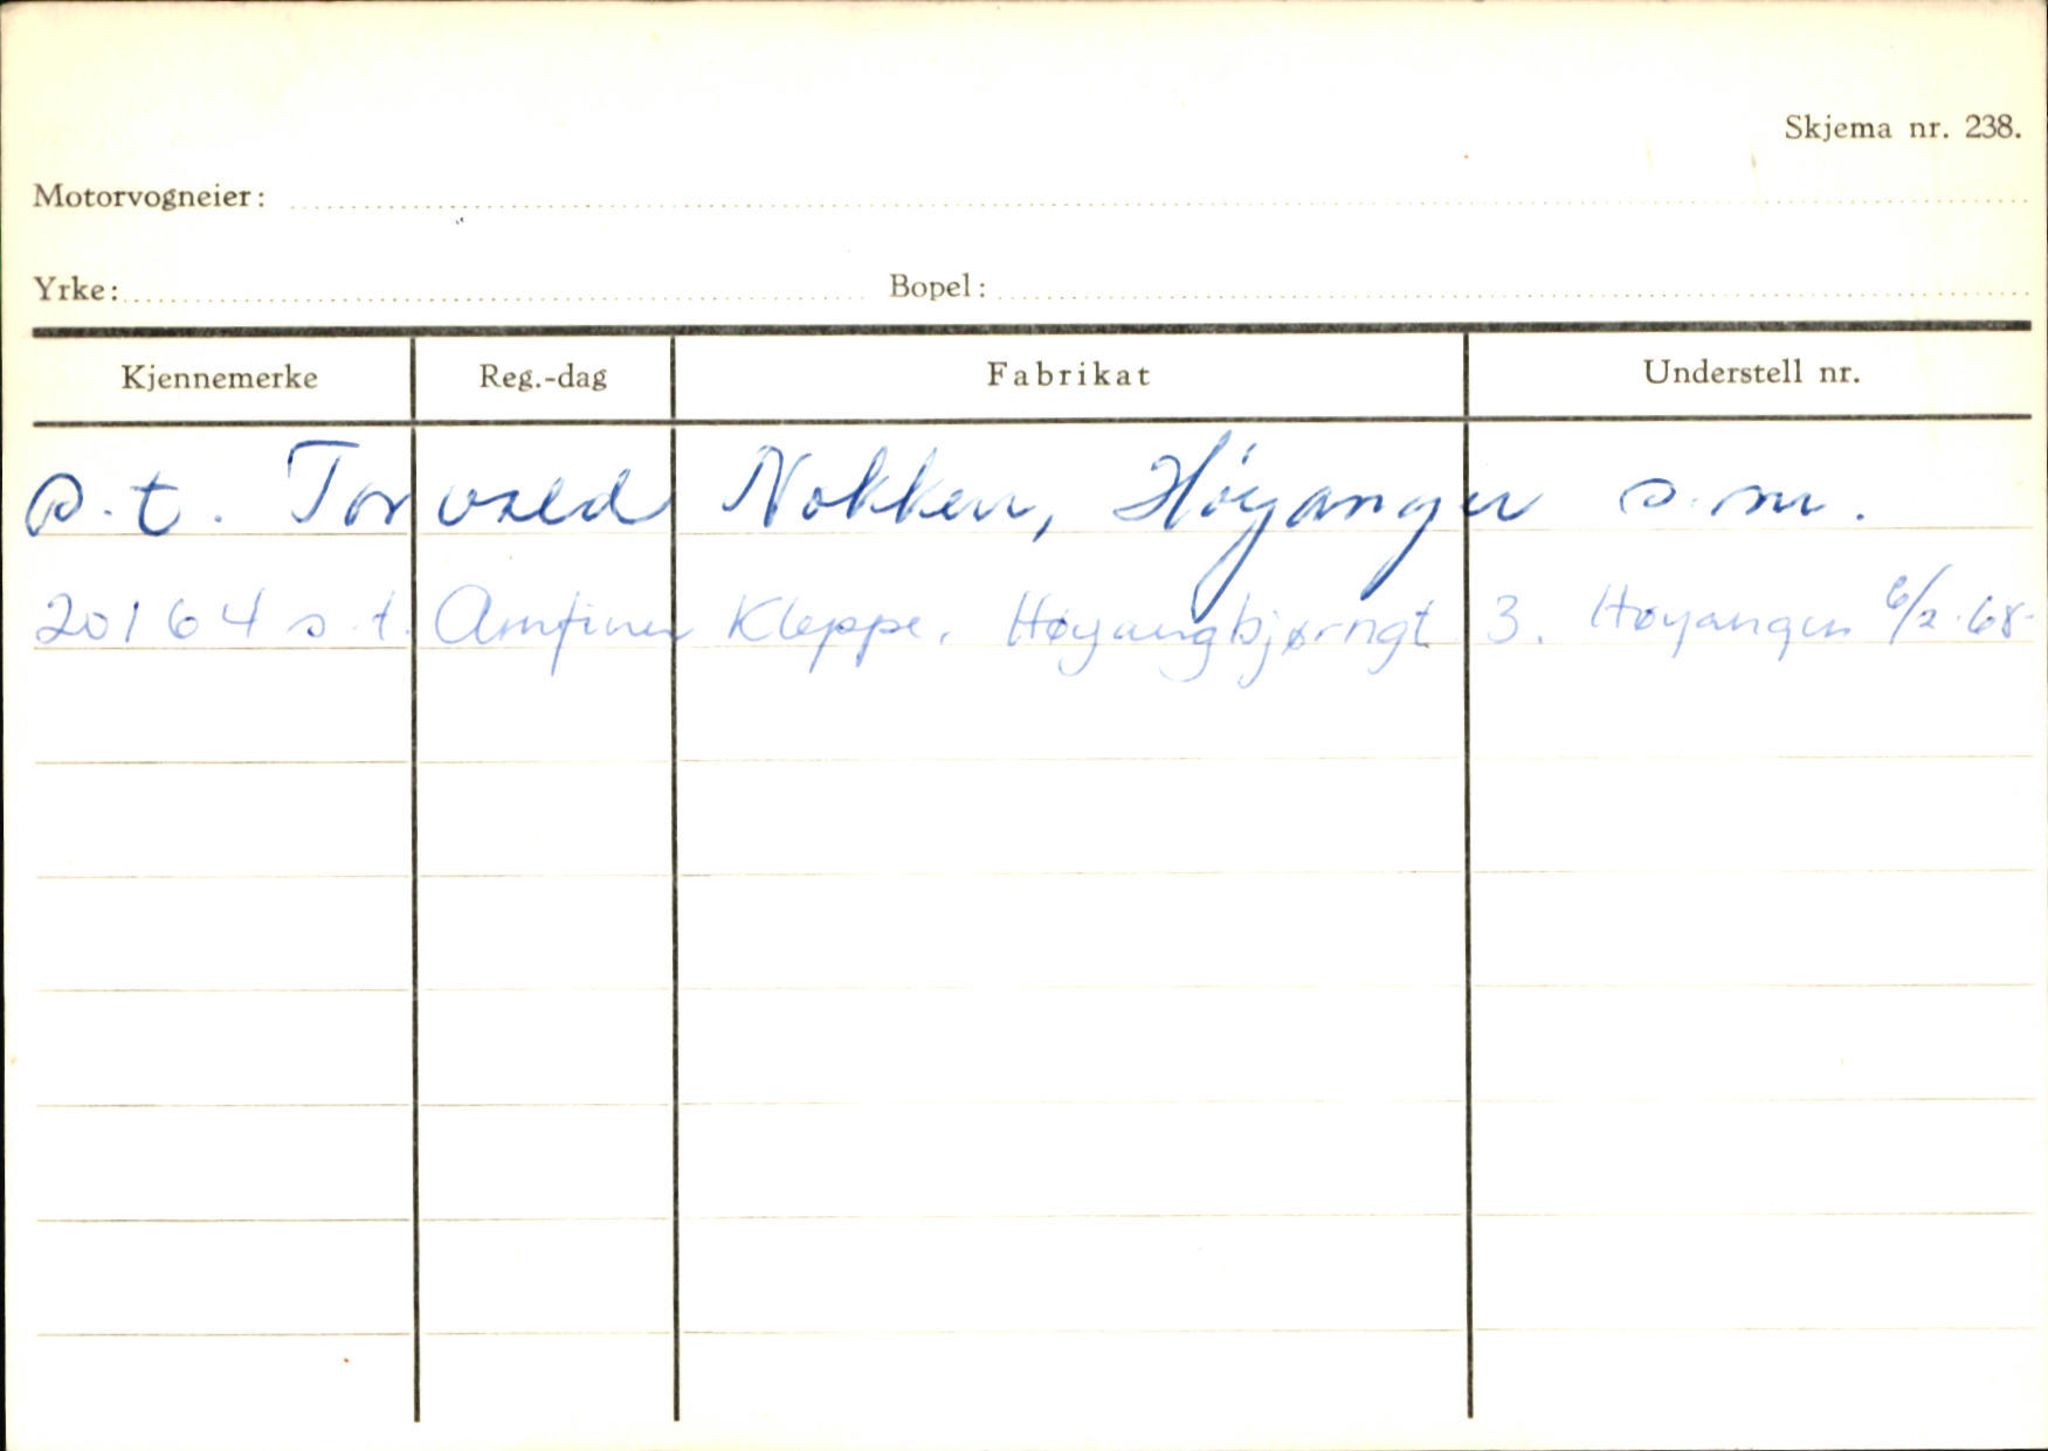 Skjema nr. 238.
Motorvogneier:
Yrke: Bopel:
Kjennemerke Reg.-dag Fabrikat Understell nr.
s.t. Torvald Nokken, Höyanger s.m.
20164 s.t. Arnfinn Kleppe, Høyangbjørngt 3. Høyanger 6/2-68-